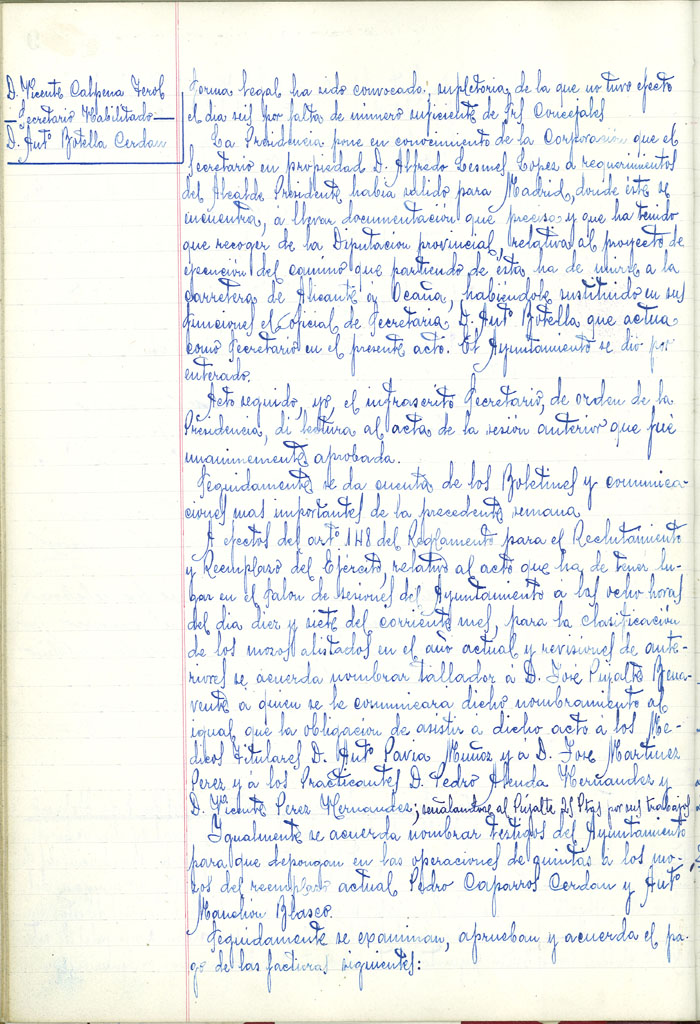 D. Vicente Calpena Terol
Secretario Habilitado
D. Antº Botella Cerdan
forma legal ha sido convocado; supletoria de la que no tuvo efecto
el dia seis por falta de número suficiente de Srs Concejales
La Presidencia pone en conocimiento de la Corporacion que el
Secretario en propiedad D. Alfredo Lesmes Lopez a requerimientos
del Alcalde Presidente habia salido para Madrid, donde éste se
encuentra, a llevar documentación que precisa y que ha tenido
que recoger de la Diputacion provincial, relativa al proyecto de
ejecución del camino que partiendo de ésta ha de unirse a la
carretera de Alicante á Ocaña, habiendole sustituido en sus
funciones el oficial de Secretaria D. Antº Botella que actua
como Secretario en el presente acto. El Ayuntamiento se dió por
enterado.
Acto seguido, yo, el infrascrito Secretario, de orden de la
Presidencia, di lectura al acta de la sesión anterior que fué
unanimemente aprobada.
Seguidamente se da cuenta de los Boletines y comunica-
ciones mas importantes de la precedente semana
A efectos del artº 148 del Reglamento para el Reclutamiento
y Reemplazo del Ejército, relativo al acto que ha de tener lu-
gar en el Salon de sesiones del Ayuntamiento á las ocho horas
del dia diez y siete del corriente mes, para la clasificación
de los mozos alistados en el año actual y revisiones de ante-
riores se acuerda nombrar tallador á D. Jose Pujalte Bena-
vente a quien se le comunicara dicho nombramiento al
igual que la obligacion de asistir a dicho acto á los Me-
dicos titulares D. Antº Pavia Muñoz y á D. Jose Martinez
Perez y á los Practicantes D. Pedro Abenda Hernandez y
D. Vicente Perez Hernandez; señalandose al Pujalte 25 Ptas por sus trabajos
Igualmente se acuerda nombrar testigos del Ayuntamiento
para que depongan en las operaciones de quintas á los mo-
zos del reemplazo actual Pedro Caparros Cerdan y Antº
Manchon Blasco.
Seguidamente se examinan, aprueban y acuerda el pa-
go de las facturas siguientes: